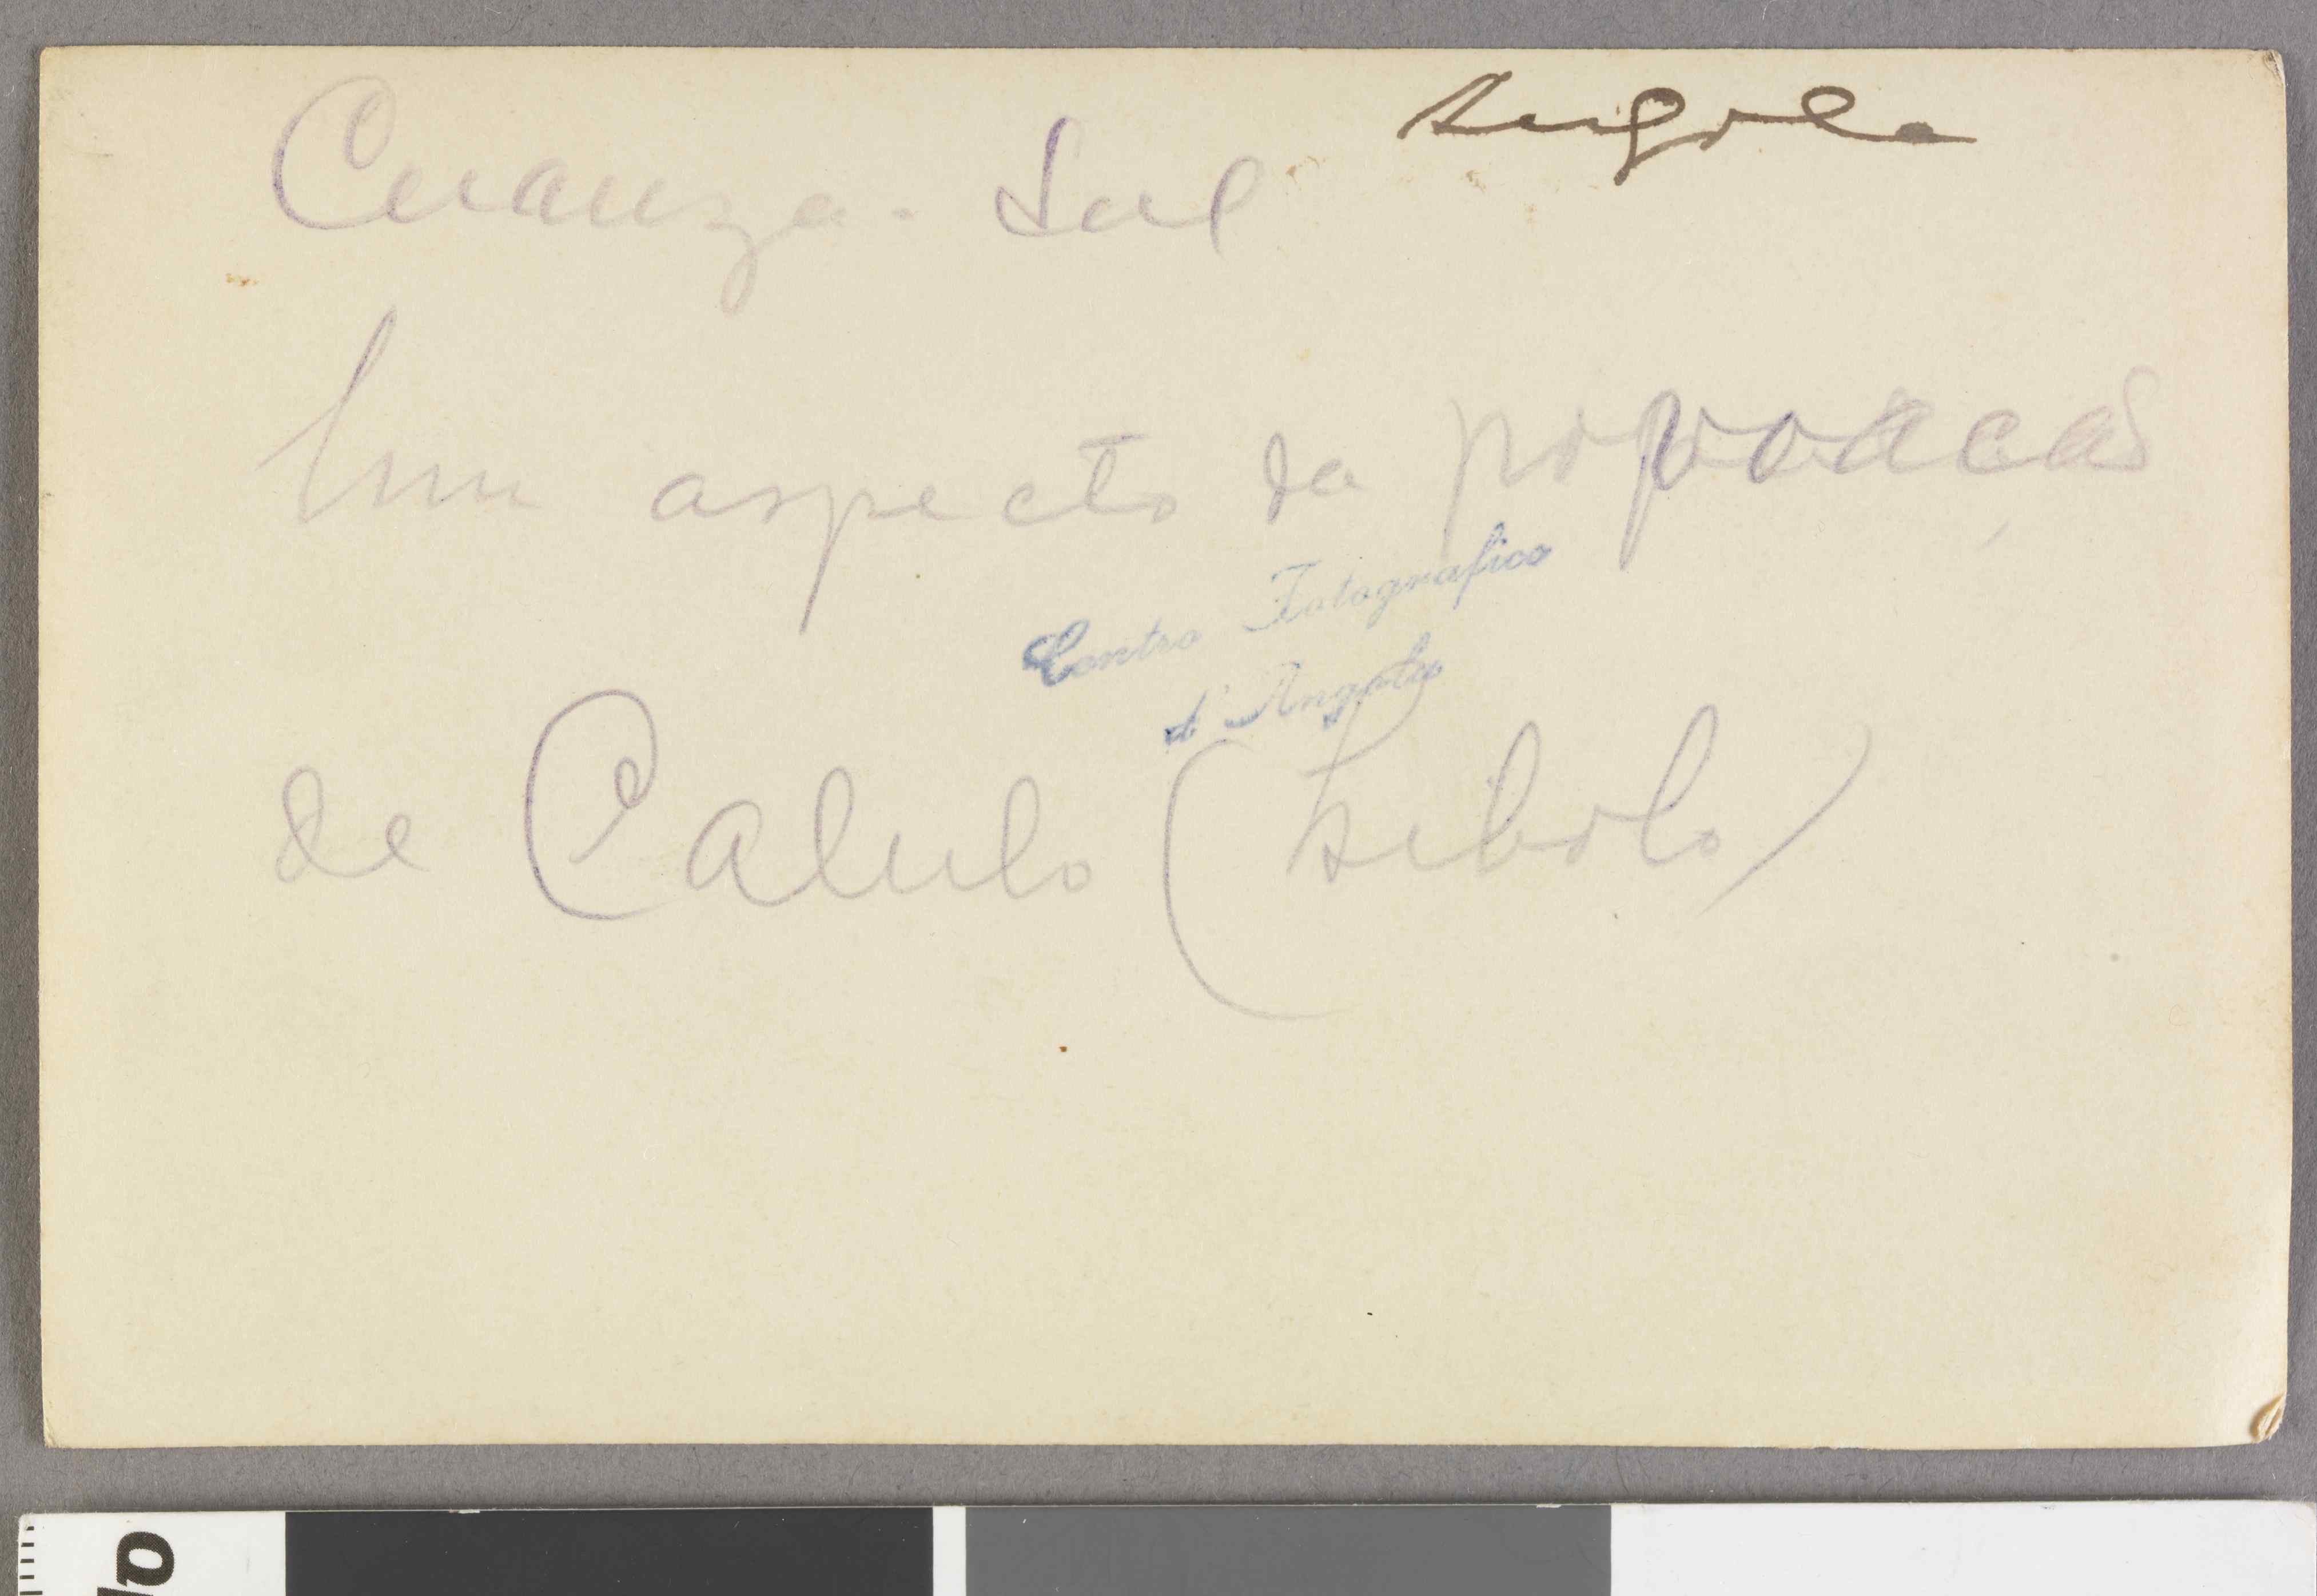 Angola
Cuanza-Sul
Um aspecto da povoação
Centro Fotografico
d'Angola
de Calulo (Libolo)